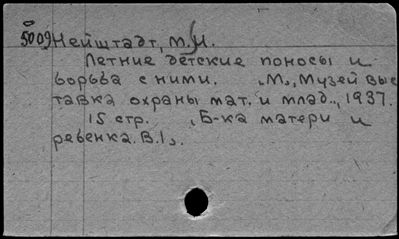 5009 Нейштадт, М.И.
Летние детские поносы и
борьба с ними. „М.„ Музей выс
тавка охраны мат. и млад.„, 1937.
15 стр. „Б-ка матери и
ребенка. В.1„.